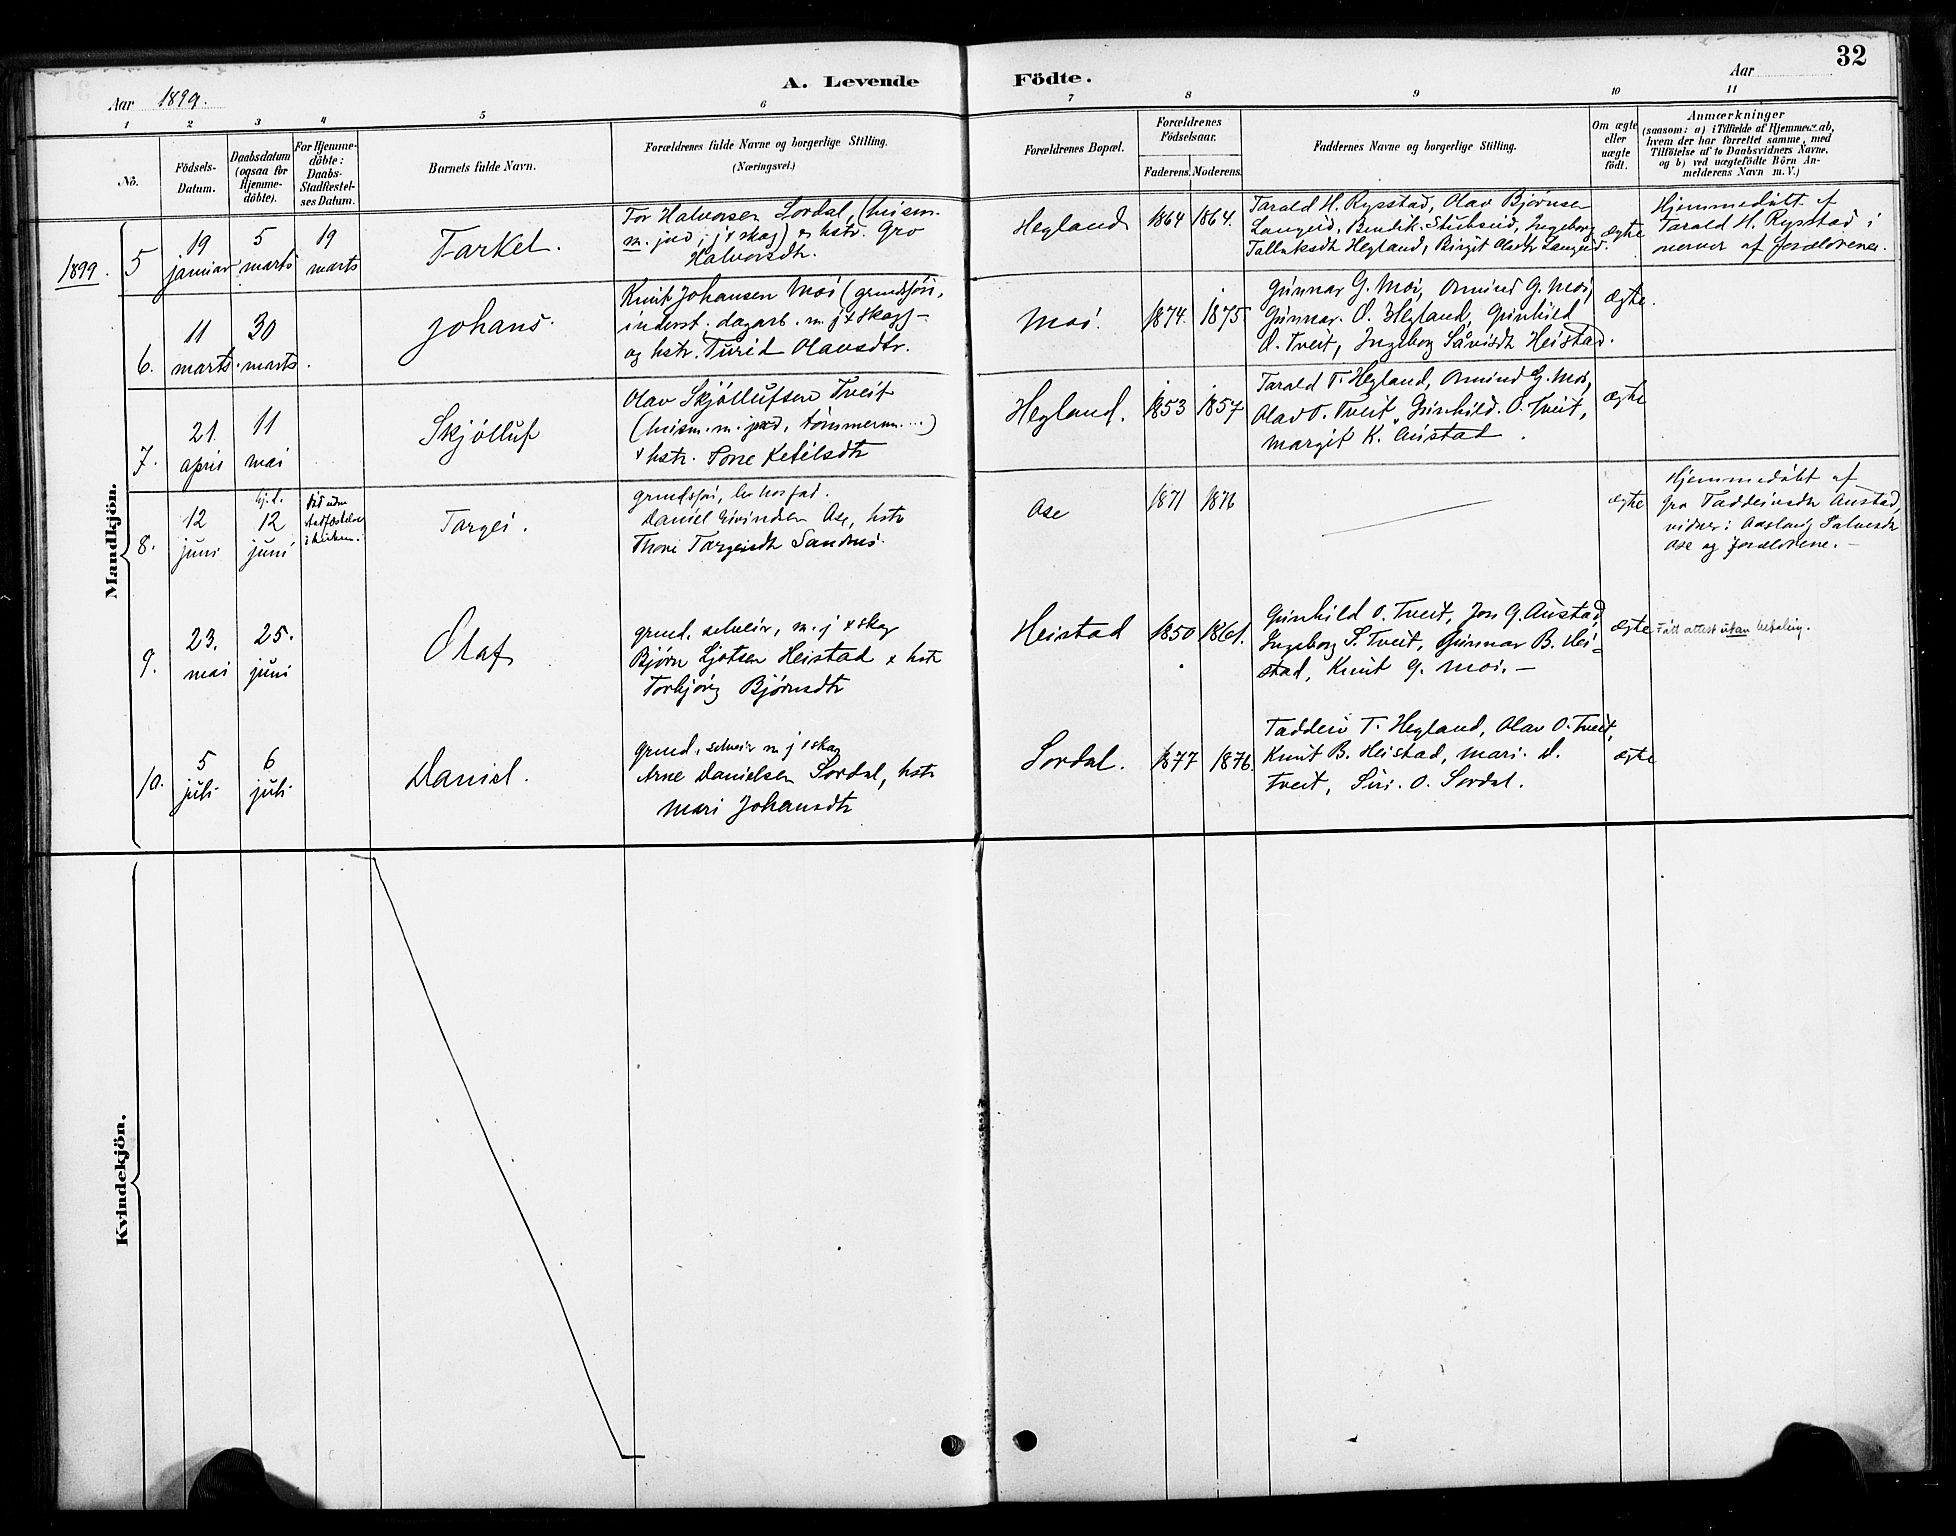 32
A. Levende Födte.
Aar 1899.
Aar
1 2 3 4 5 6 7 8 9 10 11
No.
Födsels-
Datum.
Daabsdatum
(ogsaa for
Hjemme-
döbte).
For Hjemme-
döbte:
Daabs-
Stadfæstel-
ses Datum.
Barnets fulde Navn.
Forældrenes fulde Navne og borgerlige Stilling.
(Næringsvei.)
Forældrenes Bopæl.
Forældrenes
Födselsaar.
Faderens. Moderens.
Faddernes Navne og borgerlige Stilling.
Om ægte
eller
uægte
födt.
Anmærkninger
(saasom: a) i Tilfælde af Hjemmedaab,
hvem der har forrettet samme, med
Tilföielse af to Daabsvidners Navne,
og b) ved uægtefödte Börn An-
melderens Navn m. V.)
Mandkjön.
1899.
5
19
januar
5
marts
19
marts
Tarkel.
Tor Halvorsen Lordal, (huism.
m. jord, j + skog) & hstr. Gro
Halvorsdtr.
Hegland
1864 1864.
Tarald H. Rysstad, Olav Bjørnsen
Langeid, Bendik Stubseid, Ingeborg
Tallaksdtr Hegland, Birgit Olsdtr Langeid.
ægte
Hjemmedøbt af
Tarald H. Rysstad i
nerver af forældrene.
6.
11
marts.
30
marts.
Johans.
Knut Johansen Moi (grundsjøn,
inderst, dagarb. m. j + skog) -
og hstr. Turid Olavsdtr.
Moi.
1874. 1875
Gunnar G. Moi, Omund G. Moi,
Gunnar O. Hegland, Gunhild
O. Tveit, Ingeborg Såvisdtr Heistad.
ægte.
7.
21.
april
11
mai
Skjølluf
Olav Skjøllufsen Tveit
(huism. m. jord, tømmerm....)
+ hstr. Tone Ketilsdtr
Hegland.
1853 1857
Tarald T. Hegland, Omund G. Moi,
Olav O. Tveit, Gunhild O. Tveit,
Margit K. Austad.
ægte
8.
12
juni
hj.d.
12
juni
Død uden
stadfæstelse
i kirken.
Torgei.
grundsjøn, hos fad.
Daniel Eivindsen Ose, hstr
Thone Torgeisdtr Sandnes.
Ose
1871 1876
ægte
Hjemmedøbt af
Gro Taddeivsdtr Austad,
vidner: Aaslaug Salvesdtr
Ose og forældrene.-
9.
23.
mai
25.
juni
Olaf
grund. selveier, m. j + skog
Bjørn Ljotsen Heistad + hstr
Torbjørg Bjørnsdtr
Heistad
1850 1861.
Gunhild O. Tveit, Jon G. Austad,
Ingeborg S. Tveit, Gunnar B. Hei-
stad, Knut G. Moi.-
ægte
Fått attest utan betaling.
10.
5
juli
6
juli
Daniel.
grund. selveier m j + skog
Arne Danielsen Lordal, hstr
Mari Johansdtr
Lordal.
1877 1876.
Taddeiv T. Hegland, Olav O. Tveit,
Knut B. Heistad, Mari D.
Tveit, Siri O. Lordal.
ægte
Kvindekjön.